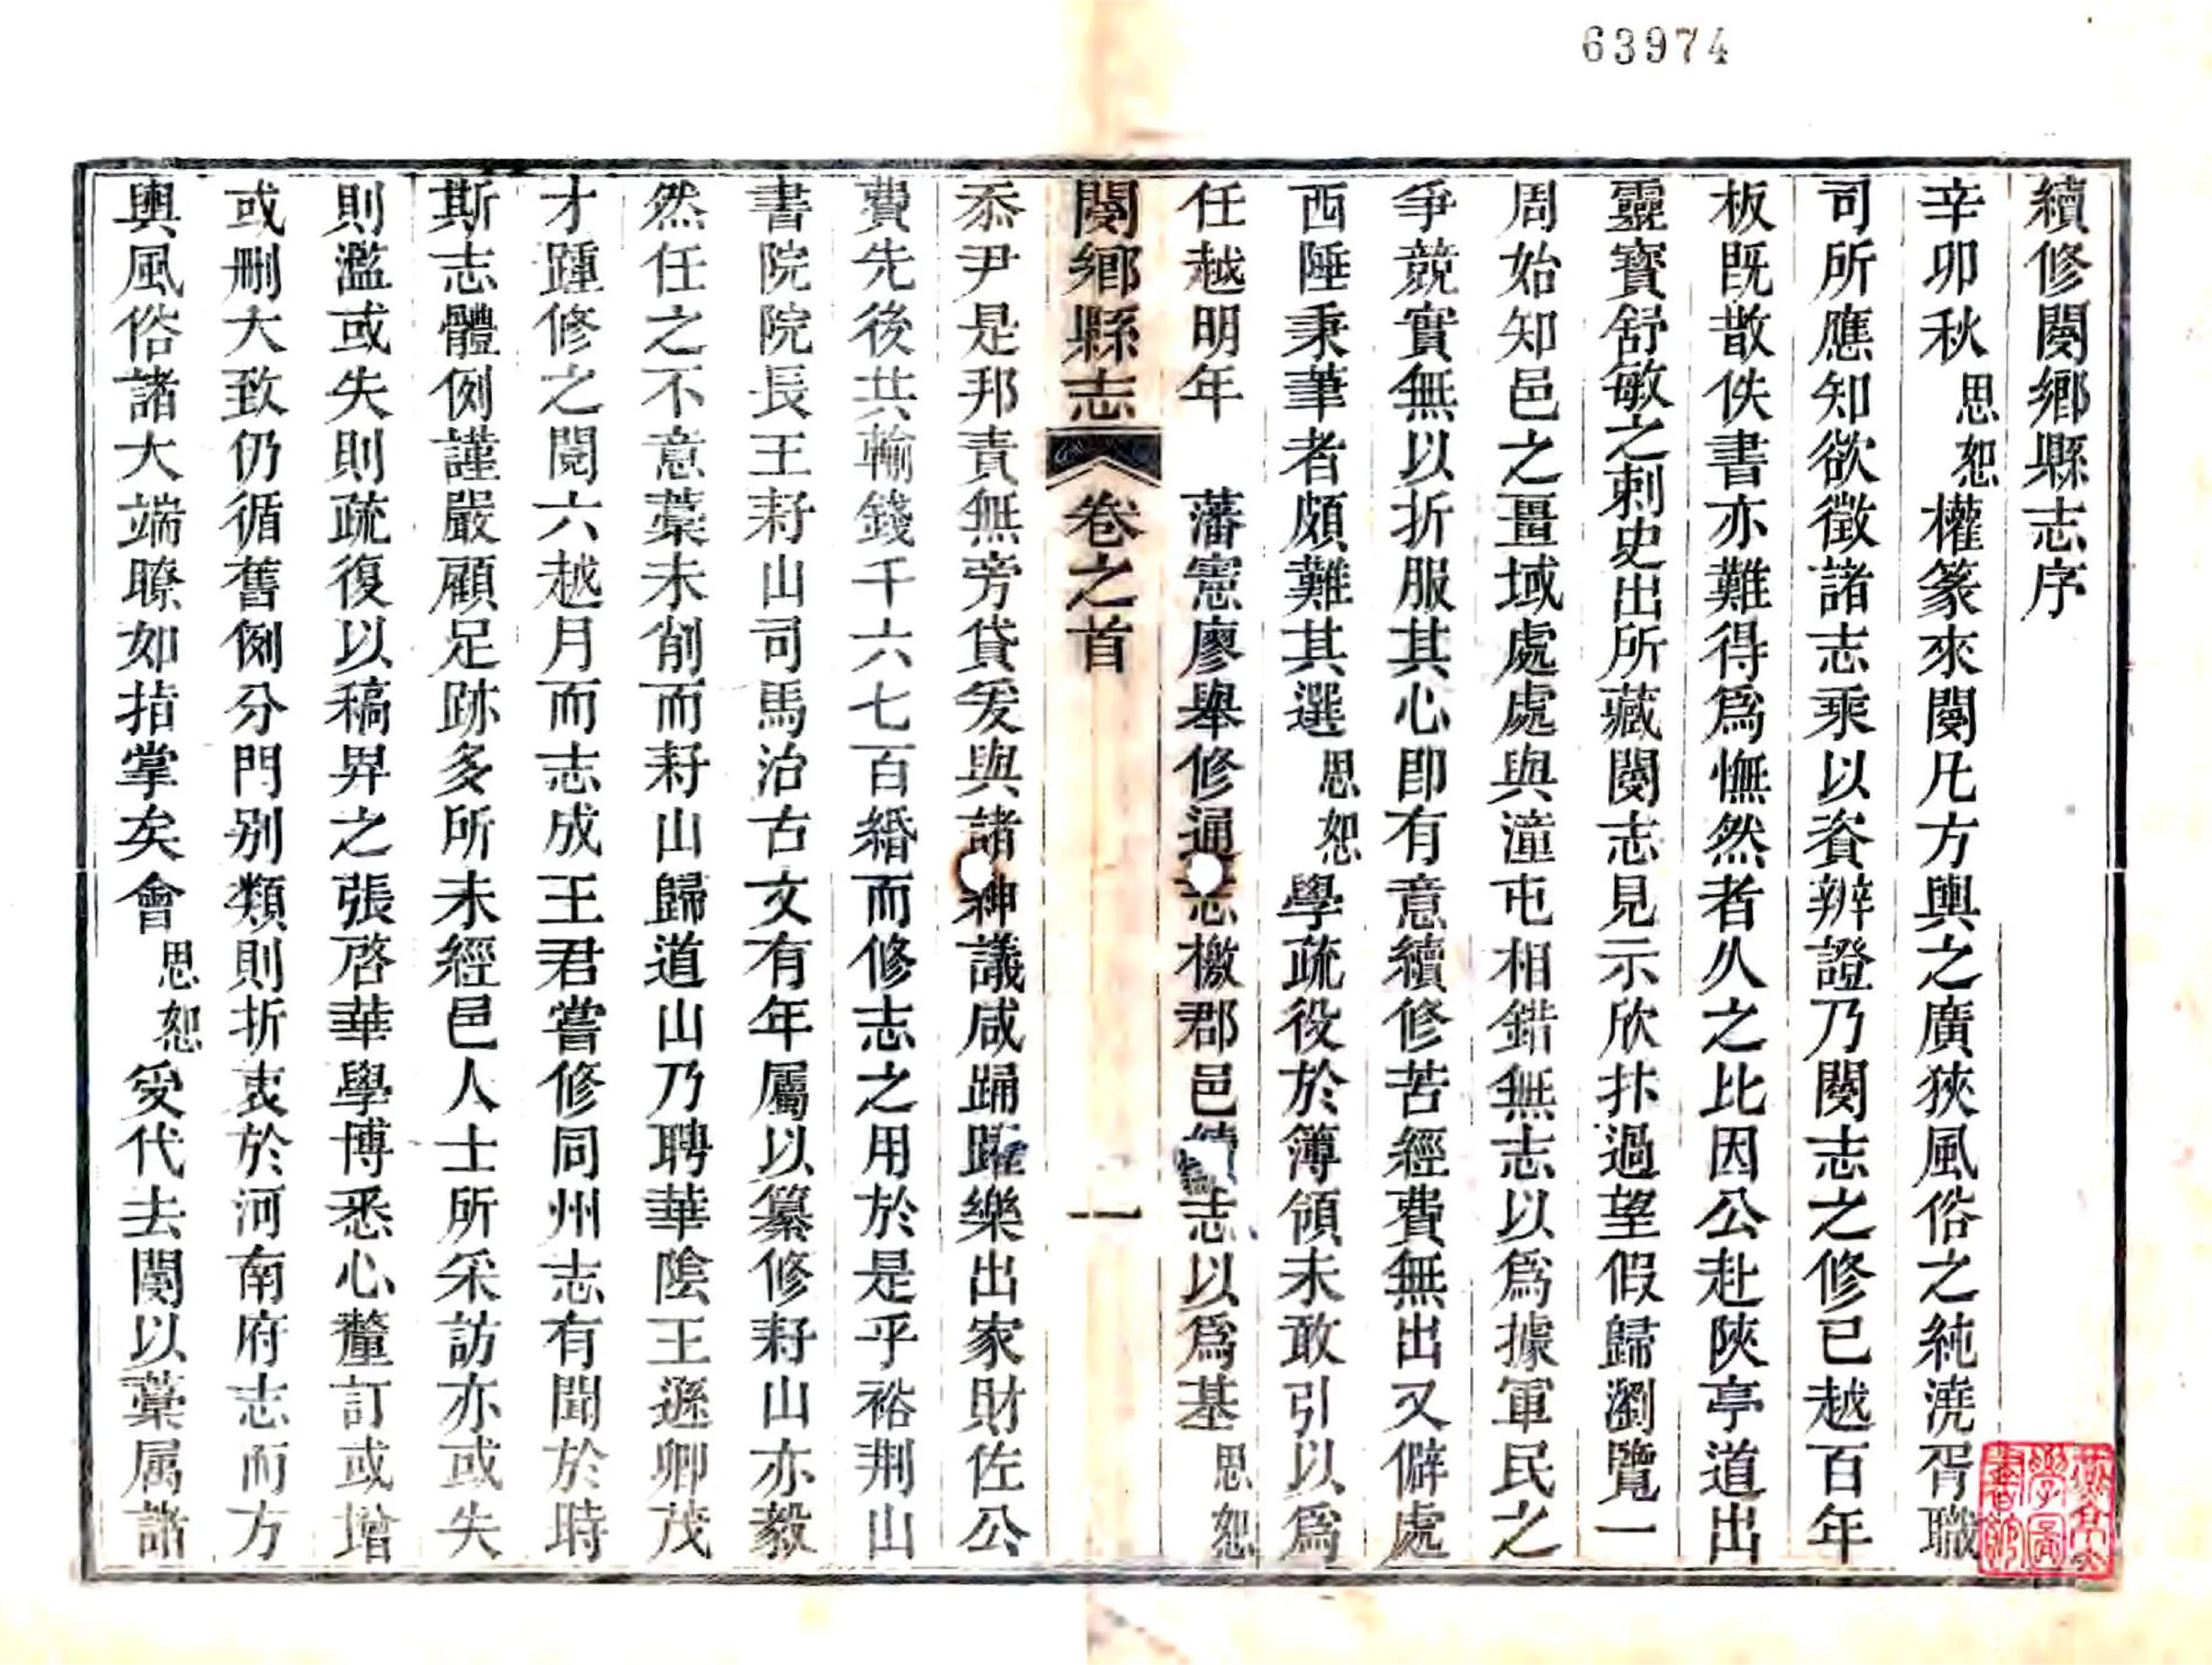 63974
續修閿鄉縣志序
辛卯秋思恕權篆來閿凡方輿之廣狹風俗之純澆胥職
司所應知欲徵諸志乘以資辨證乃閿志之修已越百年
板既散佚書亦難得爲憮然者久之比因公赴陝亭道出
靈寶舒敏之刺史出所藏閿志見示欣抃過望假歸瀏覽一
周始知邑之畺域處處與潼屯相錯無志以爲據軍民之
爭競實無以折服其心卽有意續修苦經費無出又僻處
西陲秉筆者頗難其選思恕學疏役於簿領未敢引以爲
任越明年 藩憲廖舉修通志檄郡邑續志以爲基思恕
閿鄉縣志 卷之首 一
忝尹是邦責無旁貸爰與諸紳議咸踊躍樂出家財佐公
費先後共輸錢千六七百緡而修志之用於是乎裕荆山
書院院長王耔山司馬治古文有年屬以纂修耔山亦毅
然任之不意藁未削而耔山歸道山乃聘華陰王遜卿茂
才踵修之閱六越月而志成王君嘗修同州志有聞於時
斯志體例謹嚴顧足跡多所未經邑人士所采訪亦或失
則濫或失則疏復以稿畀之張啓華學博悉心釐訂或增
或刪大致仍循舊例分門別類則折衷於河南府志而方
輿風俗諸大端暸如指掌矣會思恕受代去閿以藁属諸